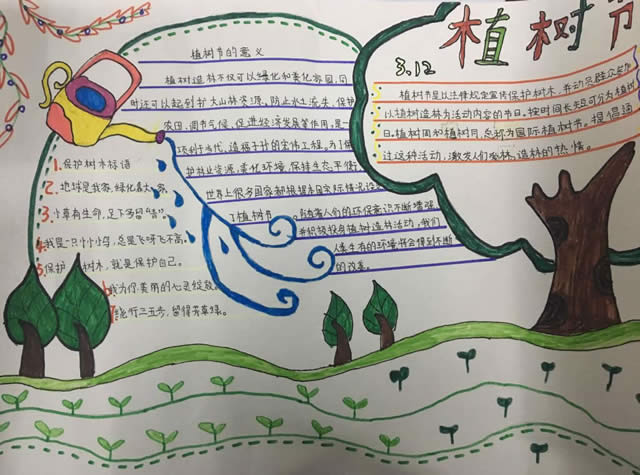 植树节
3.12
植树节是以法律规定宣传保护树木，并动员群众参加
以植树造林为活动内容的节日。按时间长短可分为植树
日、植树周和植树月，总称为国际植树节。提倡通
过这种活动，激发人们爱林、造林的热情。
植树节的意义
植树造林不仅可以绿化和美化家园，同
时还可以起到扩大山林资源、防止水土流失、保护
农田、调节气候、促进经济发展等作用，是一
项利于当代、造福子孙的宏伟工程。为了保
护林业资源，美化环境，保持生态平衡，
世界上很多国家都根据本国实际情况设
了植树节 。随着人们的环保意识不断增强
并积极投身植树造林活动，我们
人类生存的环境将会得到不断
的改善。
1.保护树木标语
2.地球是我家，绿化靠大家
3.小草有生命，足下多留“情”。
4.我是一只小小鸟，总是飞呀飞不高。
5.保护树木，就是保护自己。
6.我为你美丽的心灵绽放
7.绕行三五步，留得芳草绿。